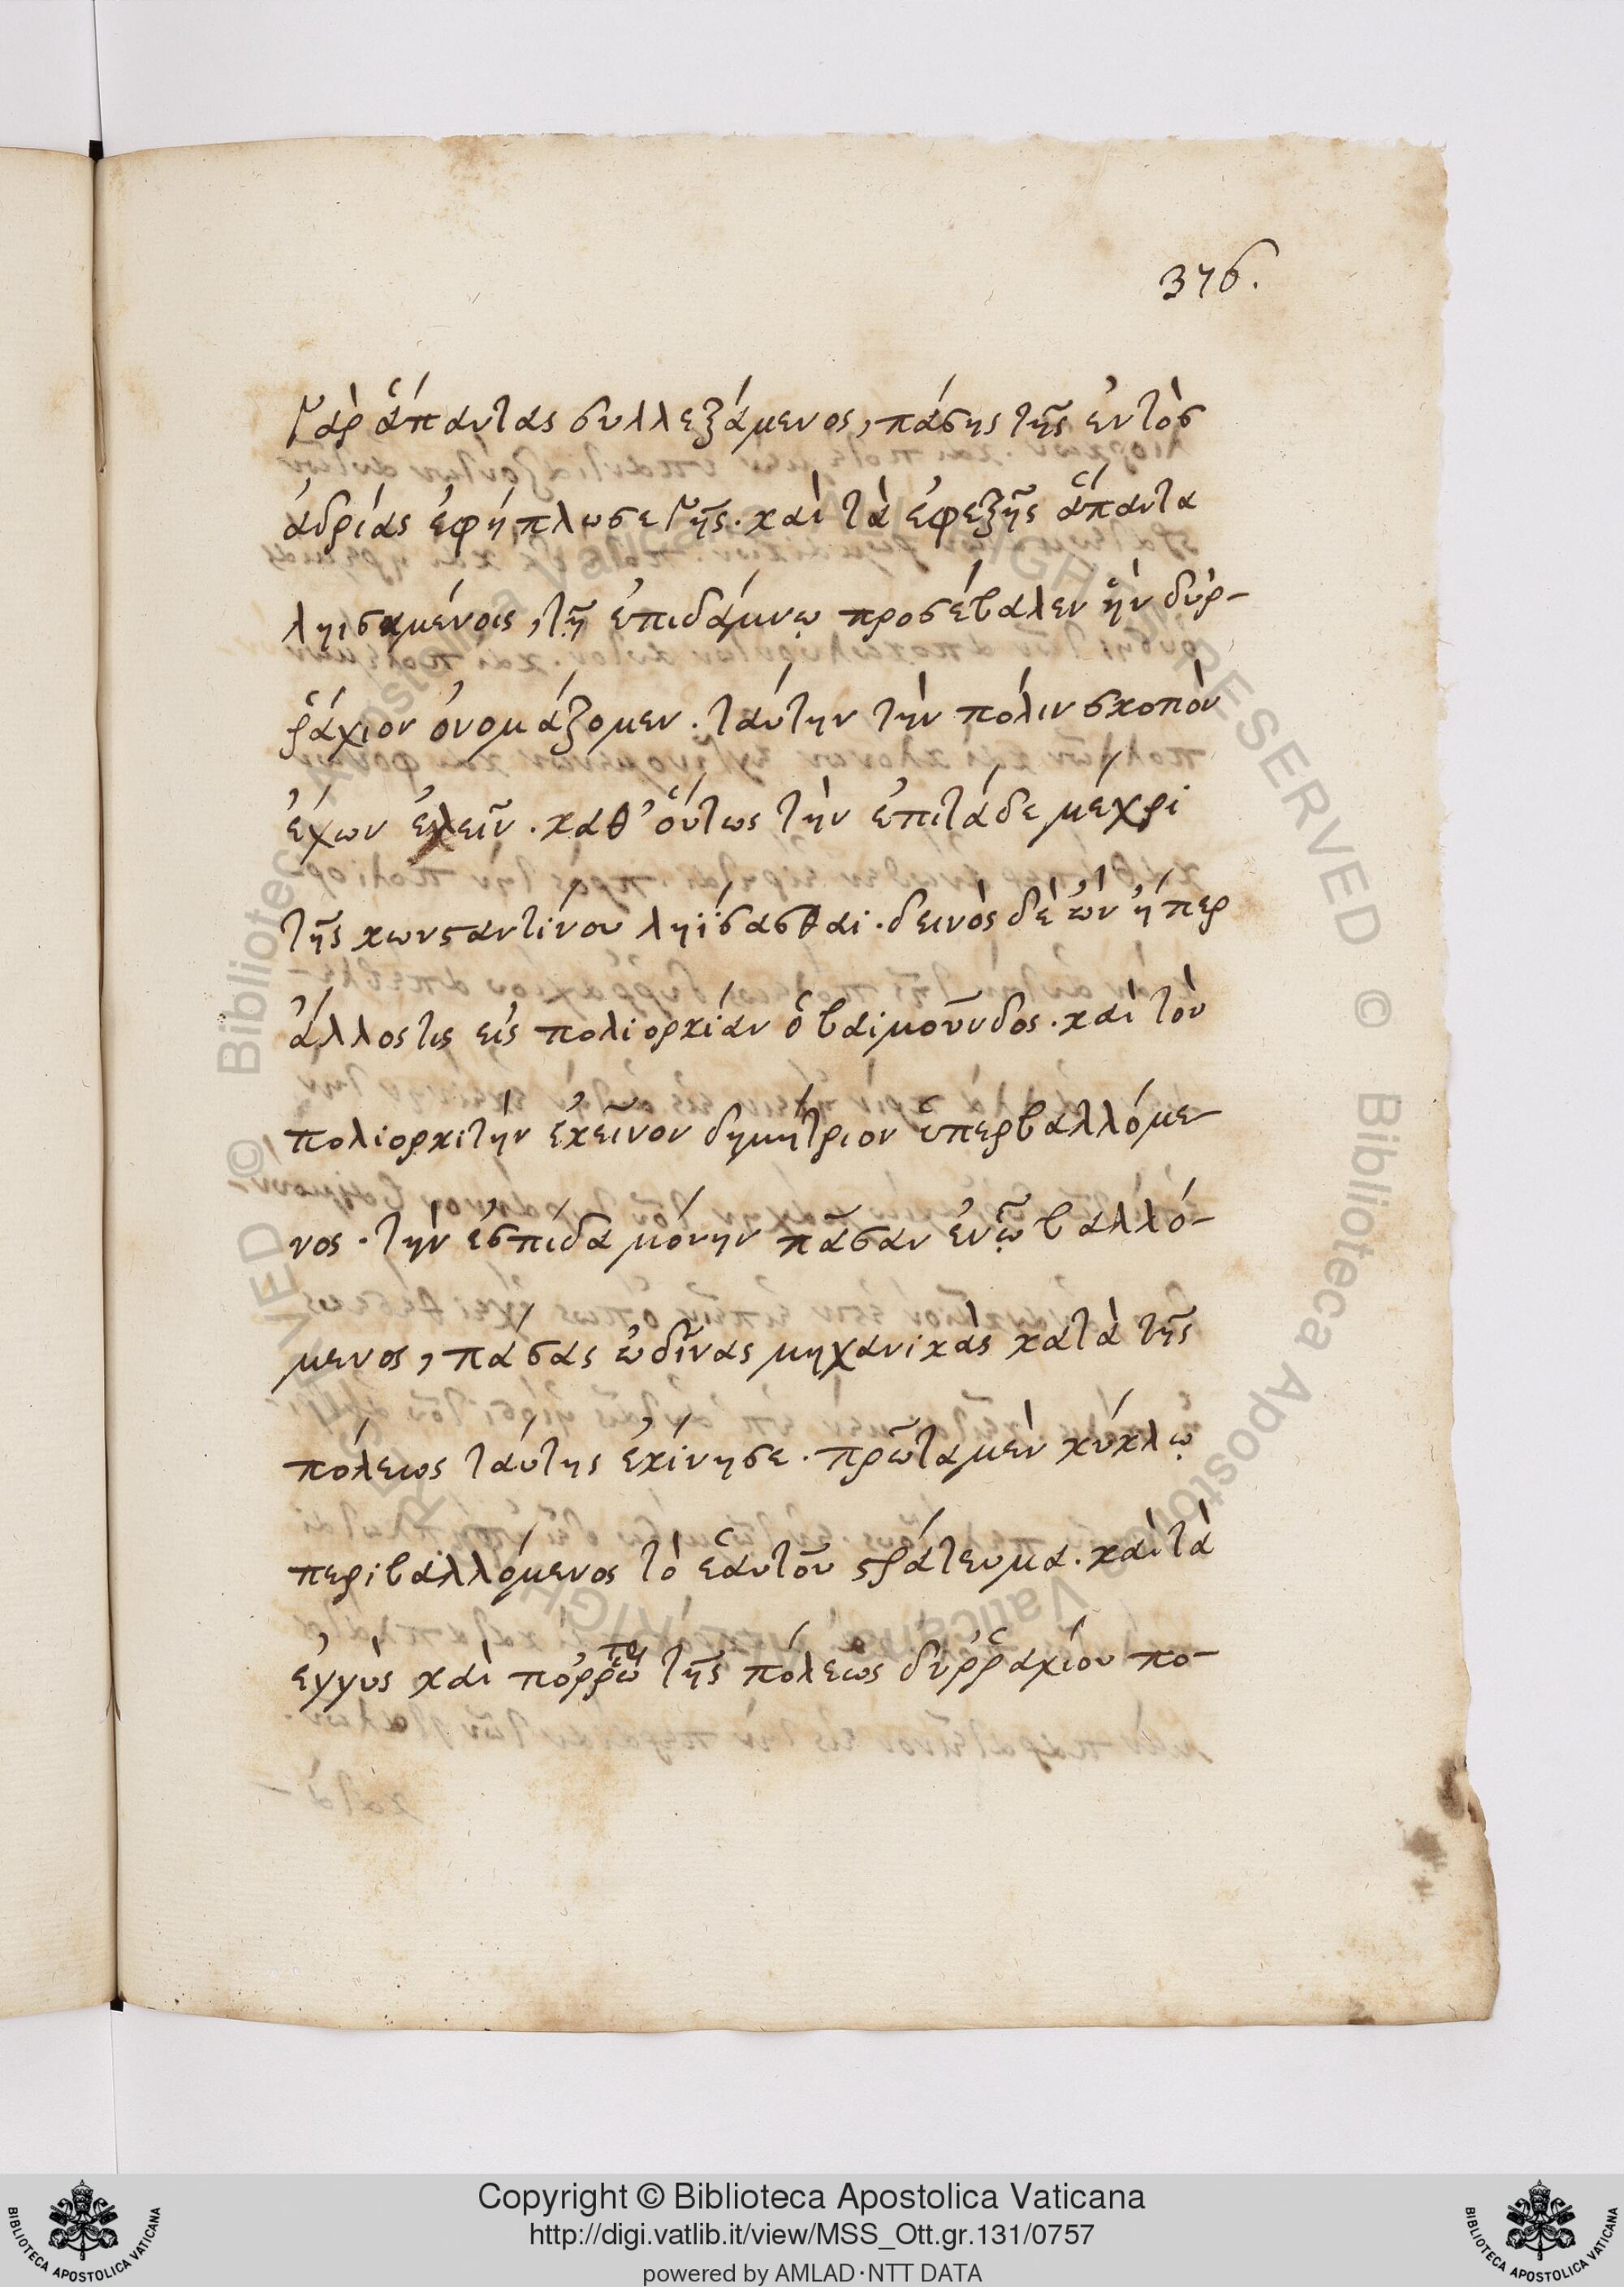 376.
γὰρ ἅπαντας συλλεξάμενος, πάσης τῆς ἐντὸς
ἀδρίας ἐφήπλωσε γῆς. καὶ τὰ ἐφεξῆς ἅπαντα
ληισαμένοις, τῇ ἐπιδάμνῳ προσέβαλεν ἣν δύρ-
ῥάχιον ὀνομάζομεν. ταύτην τὴν πόλιν σκοπὸν
ἔχων ἑλεῖν. καθ' οὕτως τὴν ἐπιτάδε μέχρι
τῆς κωνσταντίνου ληΐσασθαι. δεινὸς δὲ ὢν ἥπερ
ἄλλος τις εἰς πολιορκίαν ὁ βαϊμοῦνδος. καὶ τὸν
πολιορκιτὴν ἐκεῖνον δημήτριον ὑπερβαλλόμε-
νος. τὴν ἐσπίδα μόνην πᾶσαν ἐνῷ βαλλό-
μενος, πάσας ὠδῖνας μηχανικὰς κατὰ τῆς
πόλεως ταύτης ἐκίνησε. πρῶτα μὲν κύκλῳ
περιβαλλόμενος τὸ ἑαυτοῦ στράτευμα. καὶ τὰ
ἐγγὺς καὶ πόρρω τῆς πόλεως δυῤῥαχίου πο-
Copyright © Biblioteca Apostolica Vaticana
http://digi.vatlib.it/view/MSS_Ott.gr.131/0757
powered by AMLAD·NTT DATA
BIBLIOTECA APOSTOLICA VATICANA
BIBLIOTECA APOSTOLICA VATICANA